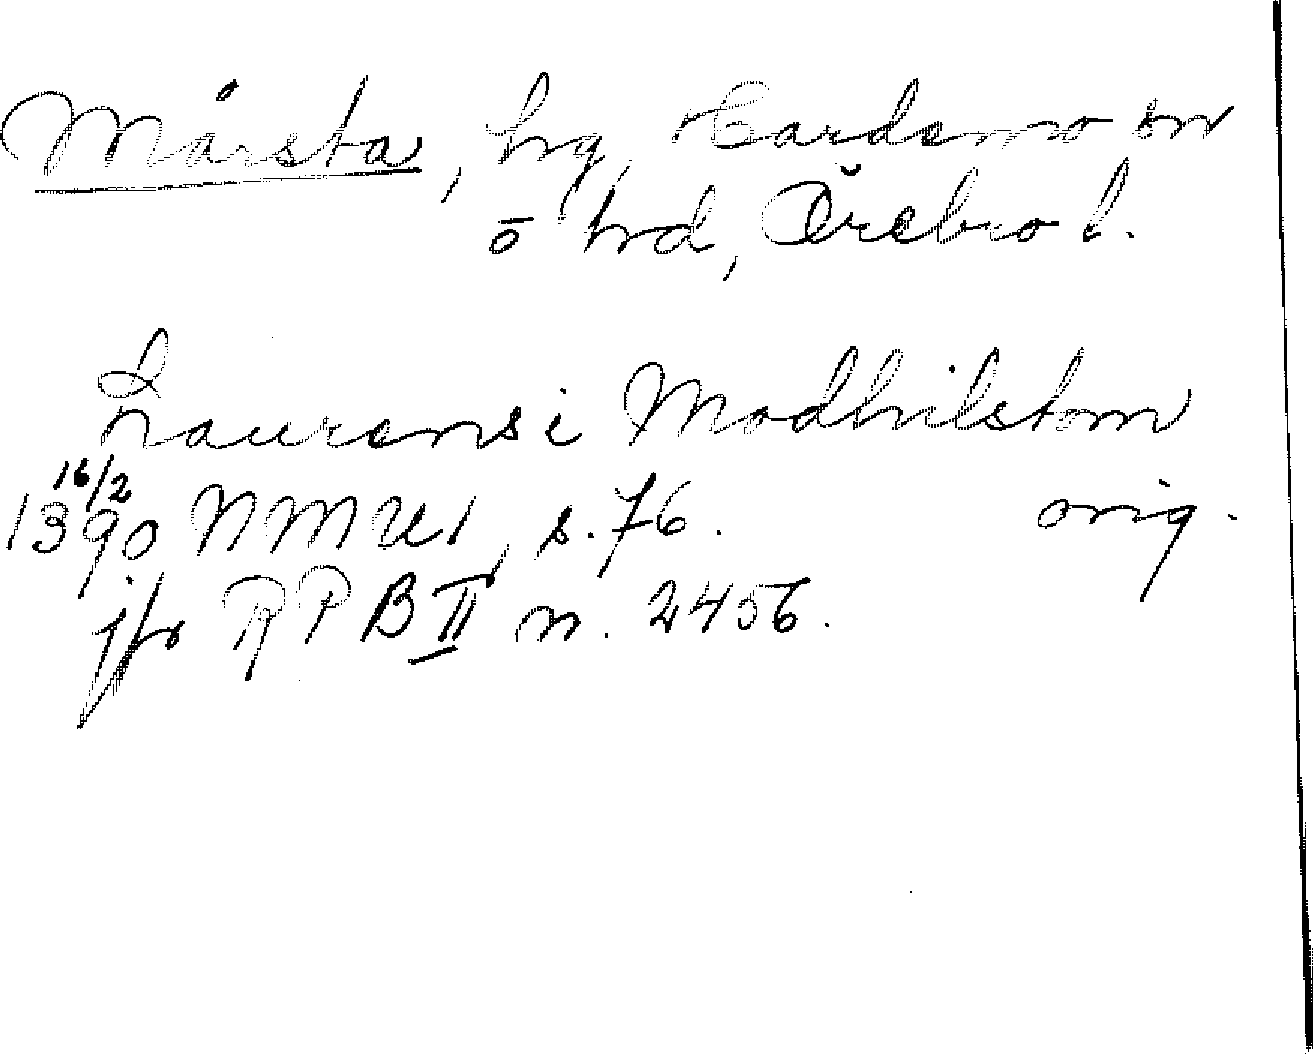 Mårsta, hg, Hardemo sn
o hd, Örebro l.
Laurensi Modhilstom
16/2
1390 NMU1, s. 76. orig.
jfr RPB II n. 2456.